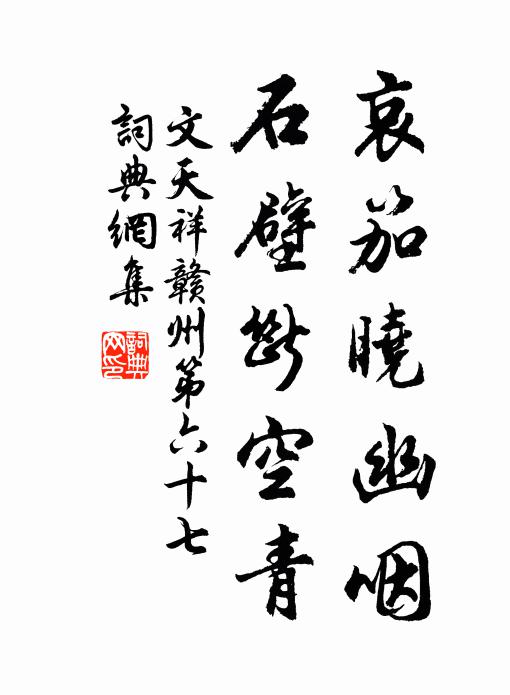 哀笳曉幽咽
石壁斷空青
文天祥贛州第六十七
詞典網集
詞典網印